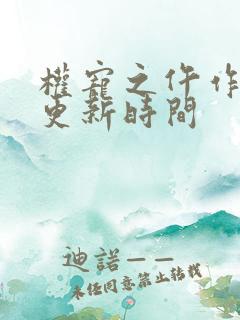 權寵之仵作
更新時間
迪諾——
未經同意禁止轉載